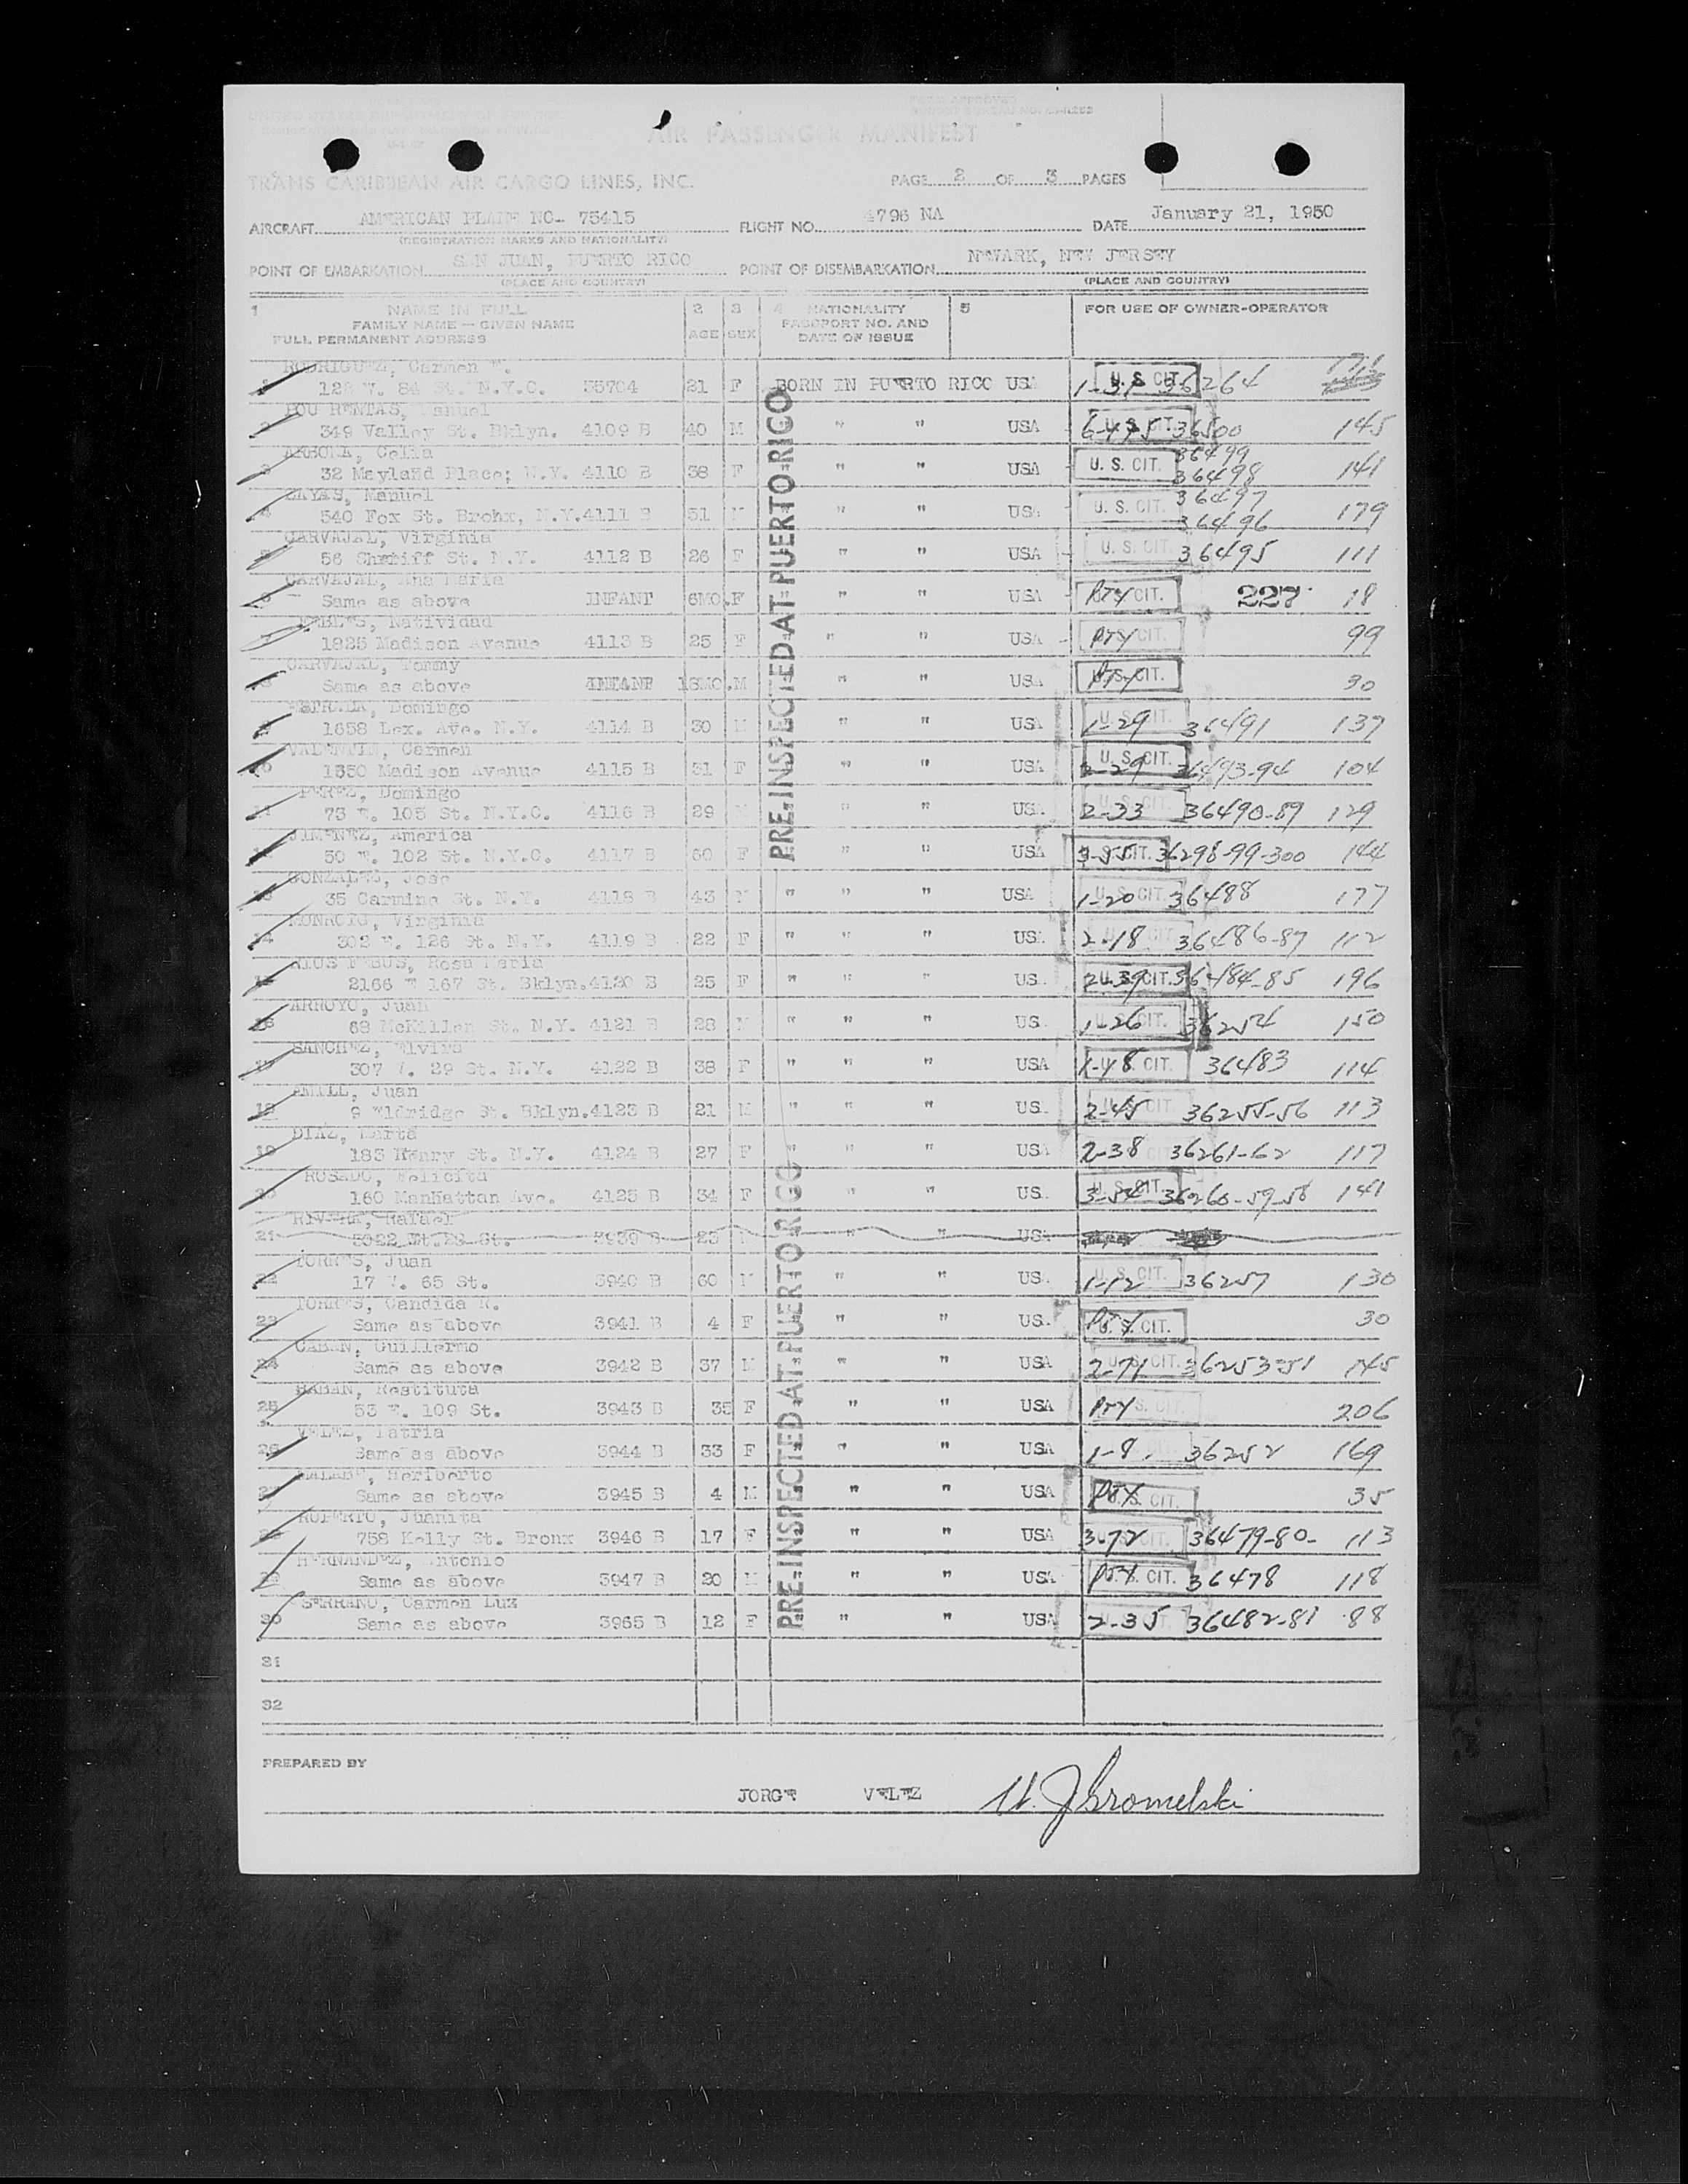 FORM APPROVED
AIR PASSENGER MANIFEST
TRANS CARIBBEAN AIR CARGO LINES, INC. PAGE 2 OF 3 PAGES
AIRCRAFT AMERICAN PLANE NO- 75415 FLIGHT NO. 4796 NA DATE January 21, 1950
(REGISTRATION MARKS AND NATIONALITY)
POINT OF EMBARKATION SAN JUAN, PUERTO RICO POINT OF DISEMBARKATION NEWARK, NEW JERSEY
(PLACE AND COUNTRY) (PLACE AND COUNTRY)
1 NAME IN FULL 2 3 4 NATIONALITY 5 FOR USE OF OWNER-OPERATOR
FAMILY NAME — GIVEN NAME AGE SEX PASSPORT NO. AND
FULL PERMANENT ADDRESS DATE OF ISSUE
PRE-INSPECTED AT PUERTO RICO
PRE-INSPECTED AT PUERTO RICO
RODRIGUEZ, Carmen E.
1 122 W. 84 St. N.Y.C. 35704 21 F BORN IN PUERTO RICO USA 1-37 U. S. CIT. 36264
POU RENTAS, Manuel
2 349 Valley St. Bklyn. 4109 B 40 M " " USA U. S. CIT. 36500 145
ARBONA, Celia 36499
3 32 Mayland Place; N.Y. 4110 B 38 F " " USA U. S. CIT. 36498 141
ZAYAS, Manuel 36497
4 540 Fox St. Brohx, N.Y. 4111 B 51 M " " USA U. S. CIT. 36496 179
CARVAJAL, Virginia
5 56 Sheriff St. N.Y. 4112 B 26 F " " USA U. S. CIT. 36495 111
CARVAJAL, Ana Maria
6 Same as above INFANT 6MO. F " " USA U. S. CIT. 227 18
Natividad
7 1825 Madison Avenue 4113 B 25 F " " USA U. S. CIT. 99
CARVAJAL, Tommy
8 Same as above INFANT 18MO. M " " USA U. S. CIT. 30
ESTRADA, Domingo
9 1658 Lex. Ave. N.Y. 4114 B 30 M " " USA 1-29 U. S. CIT. 36491 137
VALENTIN, Carmen
10 1350 Madison Avenue 4115 B 31 F " " USA 2-29 U. S. CIT. 36493-94 104
PEREZ, Domingo
11 73 E. 105 St. N.Y.C. 4116 B 29 M " " USA 2-33 U. S. CIT. 36490-89 129
JIMENEZ, America
12 50 E. 102 St. N.Y.C. 4117 B 60 F " " USA 3-55 U. S. CIT. 36298-99-300 144
GONZALES, Jose
13 35 Carmine St. N.Y. 4118 B 43 M " " " USA 1-20 U. S. CIT. 36488 177
MONROIG, Virginia
14 302 E. 126 St. N.Y. 4119 B 22 F " " " USA 2-18 U. S. CIT. 36486-87 112
Rosa Maria
15 2166 E 167 St. Bklyn. 4120 B 25 F " " " USA 2-39 U. S. CIT. 36484-85 196
ARROYO, Juan
16 St. N.Y. 4121 B 28 M " " " USA 1-26 U. S. CIT. 36254 150
SANCHEZ, Elvira
17 307 W. 29 St. N.Y. 4122 B 38 F " " " USA 1-48 U. S. CIT. 36483 114
AMILL, Juan
18 9 Eldridge St. Bklyn. 4123 B 21 M " " " USA 2-45 U. S. CIT. 36255-56 113
DIAZ, Marta
19 183 Henry St. N.Y. 4124 B 27 F " " " USA 2-38 36261-62 117
ROSADO, Felicita
20 160 Manhattan Ave. 4125 B 34 F " " USA 3-54 U. S. CIT. 36260-59-58 141
RIVERA, Rafael
21 St. 3939 B 23 " " USA
TORRES, Juan
22 17 W. 65 St. 3940 B 60 M " " USA 1-12 U. S. CIT. 36257 130
TORRES, Candida R.
23 Same as above 3941 B 4 F " " USA U. S. CIT. 30
CABAN, Guillermo
24 Same as above 3942 B 37 M " " USA 2-71 U. S. CIT. 36253-51 145
Restituta
25 53 E. 109 St. 3943 B 35 F " " USA U. S. CIT. 206
VELEZ, Patria
26 Same as above 3944 B 33 F " " USA 1-8 36252 169
Heriberto
27 Same as above 3945 B 4 M " " USA U. S. CIT. 35
RUPERTO, Juanita
28 758 Kelly St. Bronx 3946 B 17 F " " USA 3-72 U. S. CIT. 36479-80- 113
HERNANDEZ, Antonio
29 Same as above 3947 B 20 M " " USA U. S. CIT. 36478 118
SERRANO, Carmen Luz
30 Same as above 3965 B 12 F " " USA 2-35 36482-81 88
31
32
PREPARED BY
JORGE VELEZ